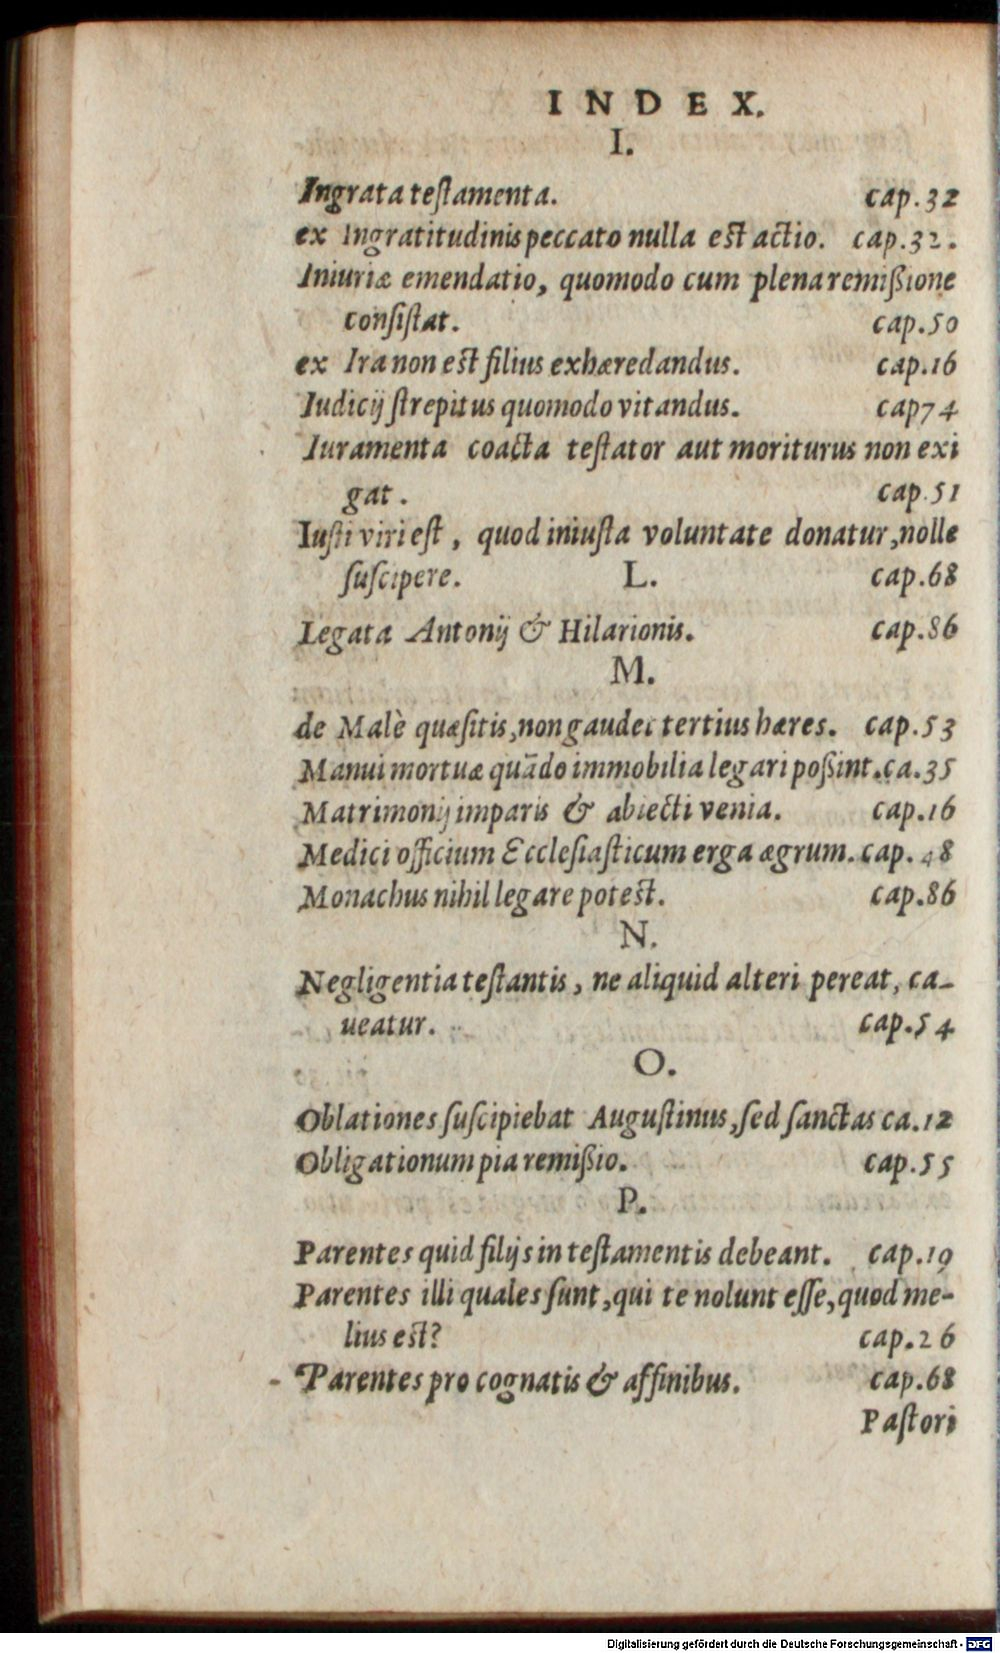 INDEX.
I.
Ingrata teſtamenta. cap.32
ex Ingratitudinis peccato nulla eſt actio. cap.32.
Iniuriæ emendatio, quomodo cum plena remiſsione
conſiſtat. cap.50
ex Ira non eſt filius exhæredandus. cap.16
Iudicij ſtrepitus quomodo vitandus. cap74
Iuramenta coacta teſtator aut moriturus non exi
gat. cap.51
Iuſti viri eſt, quod iniuſta voluntate donatur, nolle
ſuſcipere. L. cap.68
Legata Antonij & Hilarionis. cap.86
M.
de Malè quæſitis, non gaudet tertius hæres. cap.53
Manui mortuæ quādo immobilia legari poſsint. ca.35
Matrimonij imparis & abiecti venia. cap.16
Medici officium Eccleſiaſticum erga ægrum. cap. 48
Monachus nihil legare poteſt. cap.86
N.
Negligentia teſtantis, ne aliquid alteri pereat, ca-
ueatur. cap.54
O.
Oblationes ſuſcipiebat Auguſtinus, ſed ſanctas ca.12
Obligationum pia remiſsio. cap.55
P.
Parentes quid filijs in teſtamentis debeant. cap.19
Parentes illi quales ſunt, qui te nolunt eſſe, quod me-
lius eſt? cap.26
Parentes pro cognatis & affinibus. cap.68
Paſtori
Digitalisierung gefördert durch die Deutsche Forschungsgemeinschaft - DFG